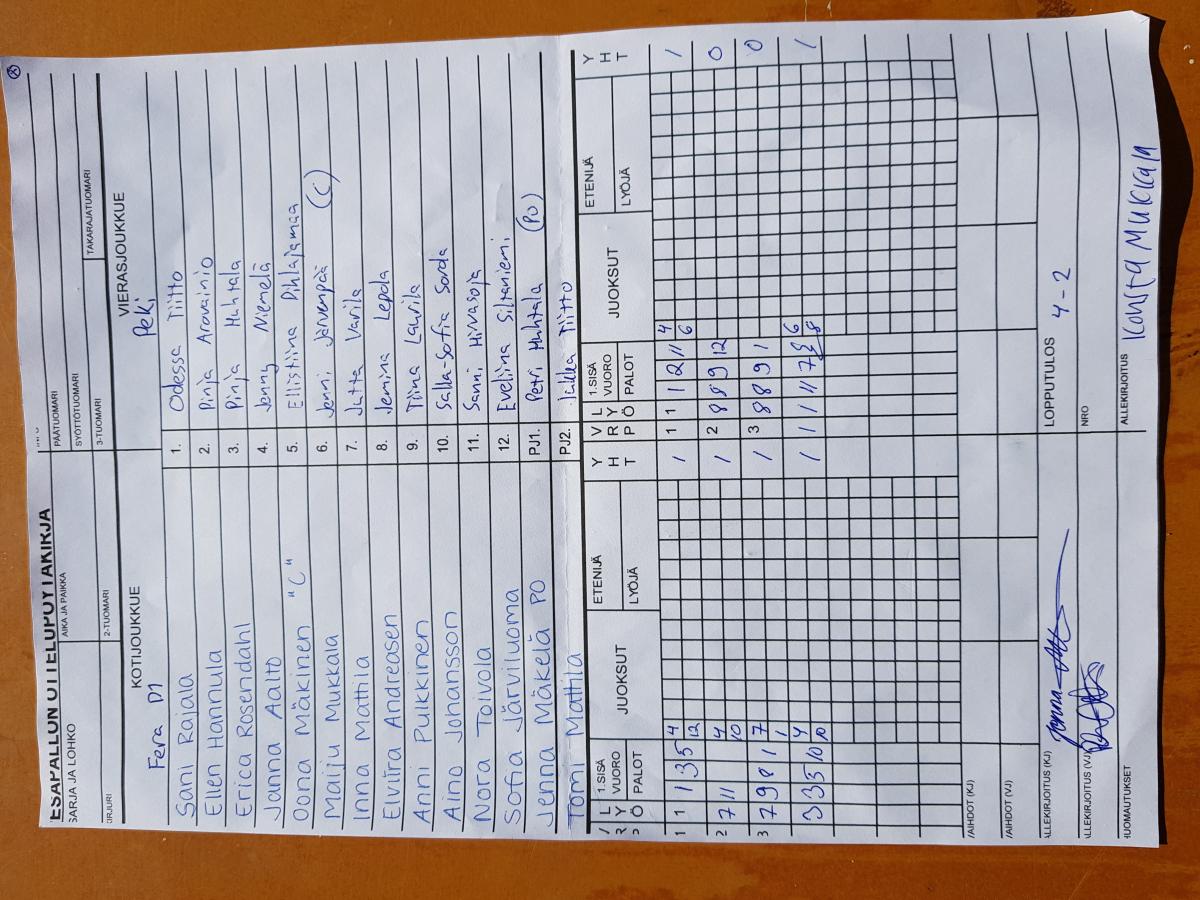 ESÄPALLON OTTELUPÖYTÄKIRJA
SARJA JA LOHKO
AIKA JA PAIKKA
PÄÄTUOMARI
SYÖTTÖTUOMARI
2-TUOMARI
3-TUOMARI
TAKARAJATUOMARI
KOTIJOUKKUE
VIERASJOUKKUE
Fera D1
PeKi
Sani Rajala 1. Odessa Tiitto
Ellen Hannula 2. Pinja Aravainio
Erica Rosendahl 3. Pinja Huhtala
Janna Aalto 4. Jenny Niemelä
Oona Mäkinen "C" 5. Ellistiina Pihlajamaa
Maiju Mukkala 6. Jenni Järvenpää (C)
Inna Mattila 7. Jutta Varila
Elviira Andreasen 8. Jemina Lepola
Anni Pulkkinen 9. Tiina Laurila
Aino Johansson 10. Salla-Sofia Sorda
Nora Toivola 11. Sanni Hirvasoja
Sofia Järviluoma 12. Eveliina Siltaniemi
Jenna Mäkelä PO PJ1. Petri Huhtala (PO)
Tomi Mattila PJ2. Jukka Tiitto
1.SISÄ VUORO PALOT JUOKSUT ETENIJÄ LYÖJÄ YHT
1.SISÄ VUORO PALOT JUOKSUT ETENIJÄ LYÖJÄ YHT
1 1 1 3 5 4 12 1
1 1 1 2 11 4 6 1
2 7 11 4 10 1
2 8 8 9 12 0
3 7 9 8 1 7 1 1
3 8 8 9 1 0
3 3 5 10 4 10 1
1 1 11 7 6 8 1
VAIHDOT (KJ)
VAIHDOT (VJ)
ALLEKIRJOITUS (KJ)
LOPPUTULOS 4-2
ALLEKIRJOITUS (VJ)
NRO
HUOMAUTUKSET
ALLEKIRJOITUS